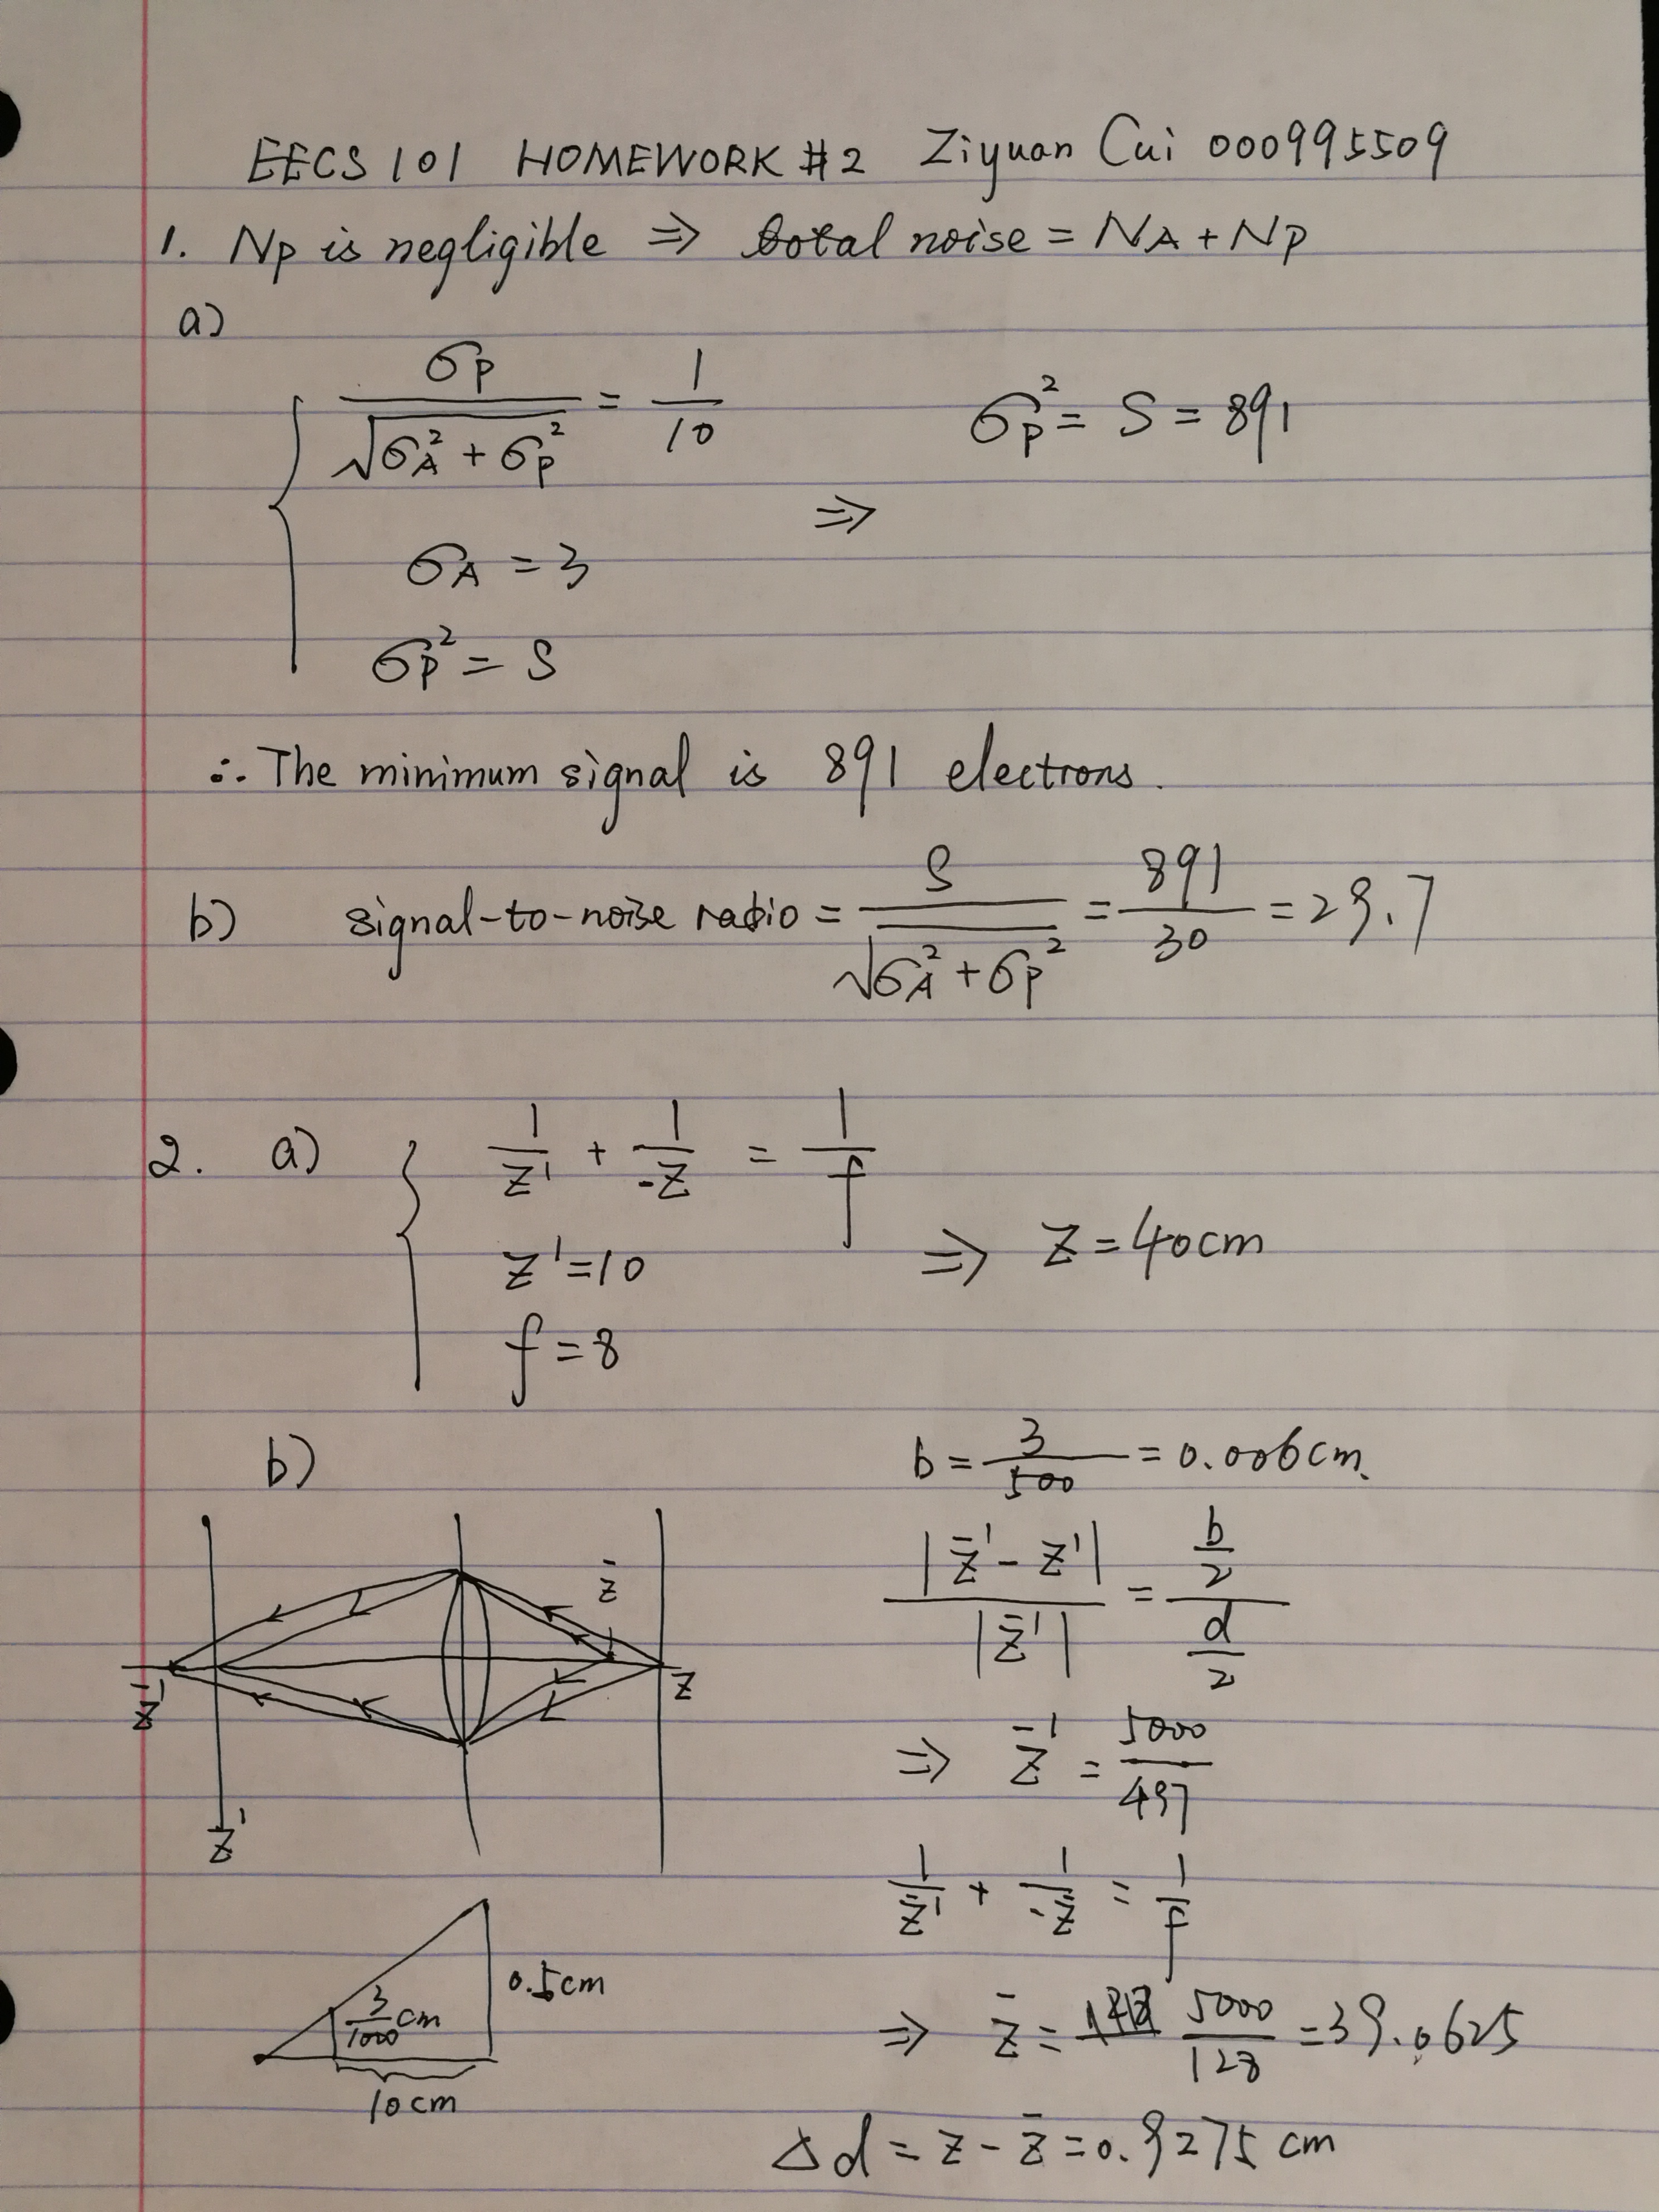 EECS 101 HOMEWORK #2 Ziyuan Cui 000995509
1. Np is negligible ⇒ total noise = NA + Np
a)
σp / √(σA² + σp²) = 1/10
σA = 3
σp² = S
⇒ σp² = S = 891
∴ The minimum signal is 891 electrons.
b) signal-to-noise ratio = S / √(σA² + σp²) = 891/30 = 29.7
2. a) 1/z' + 1/-z = 1/f
z' = 10
f = 8
⇒ z = 40cm
b)
z̄
z
z̄'
z'
3/1000 cm
0.5cm
10cm
b = 3/500 = 0.006cm.
|z̄' - z'| / |z̄'| = (b/2) / (d/2)
⇒ z̄' = 5000/497
1/z̄' + 1/-z̄ = 1/f
⇒ z̄ = 5000/128 = 39.0625
Δd = z - z̄ = 0.9275 cm